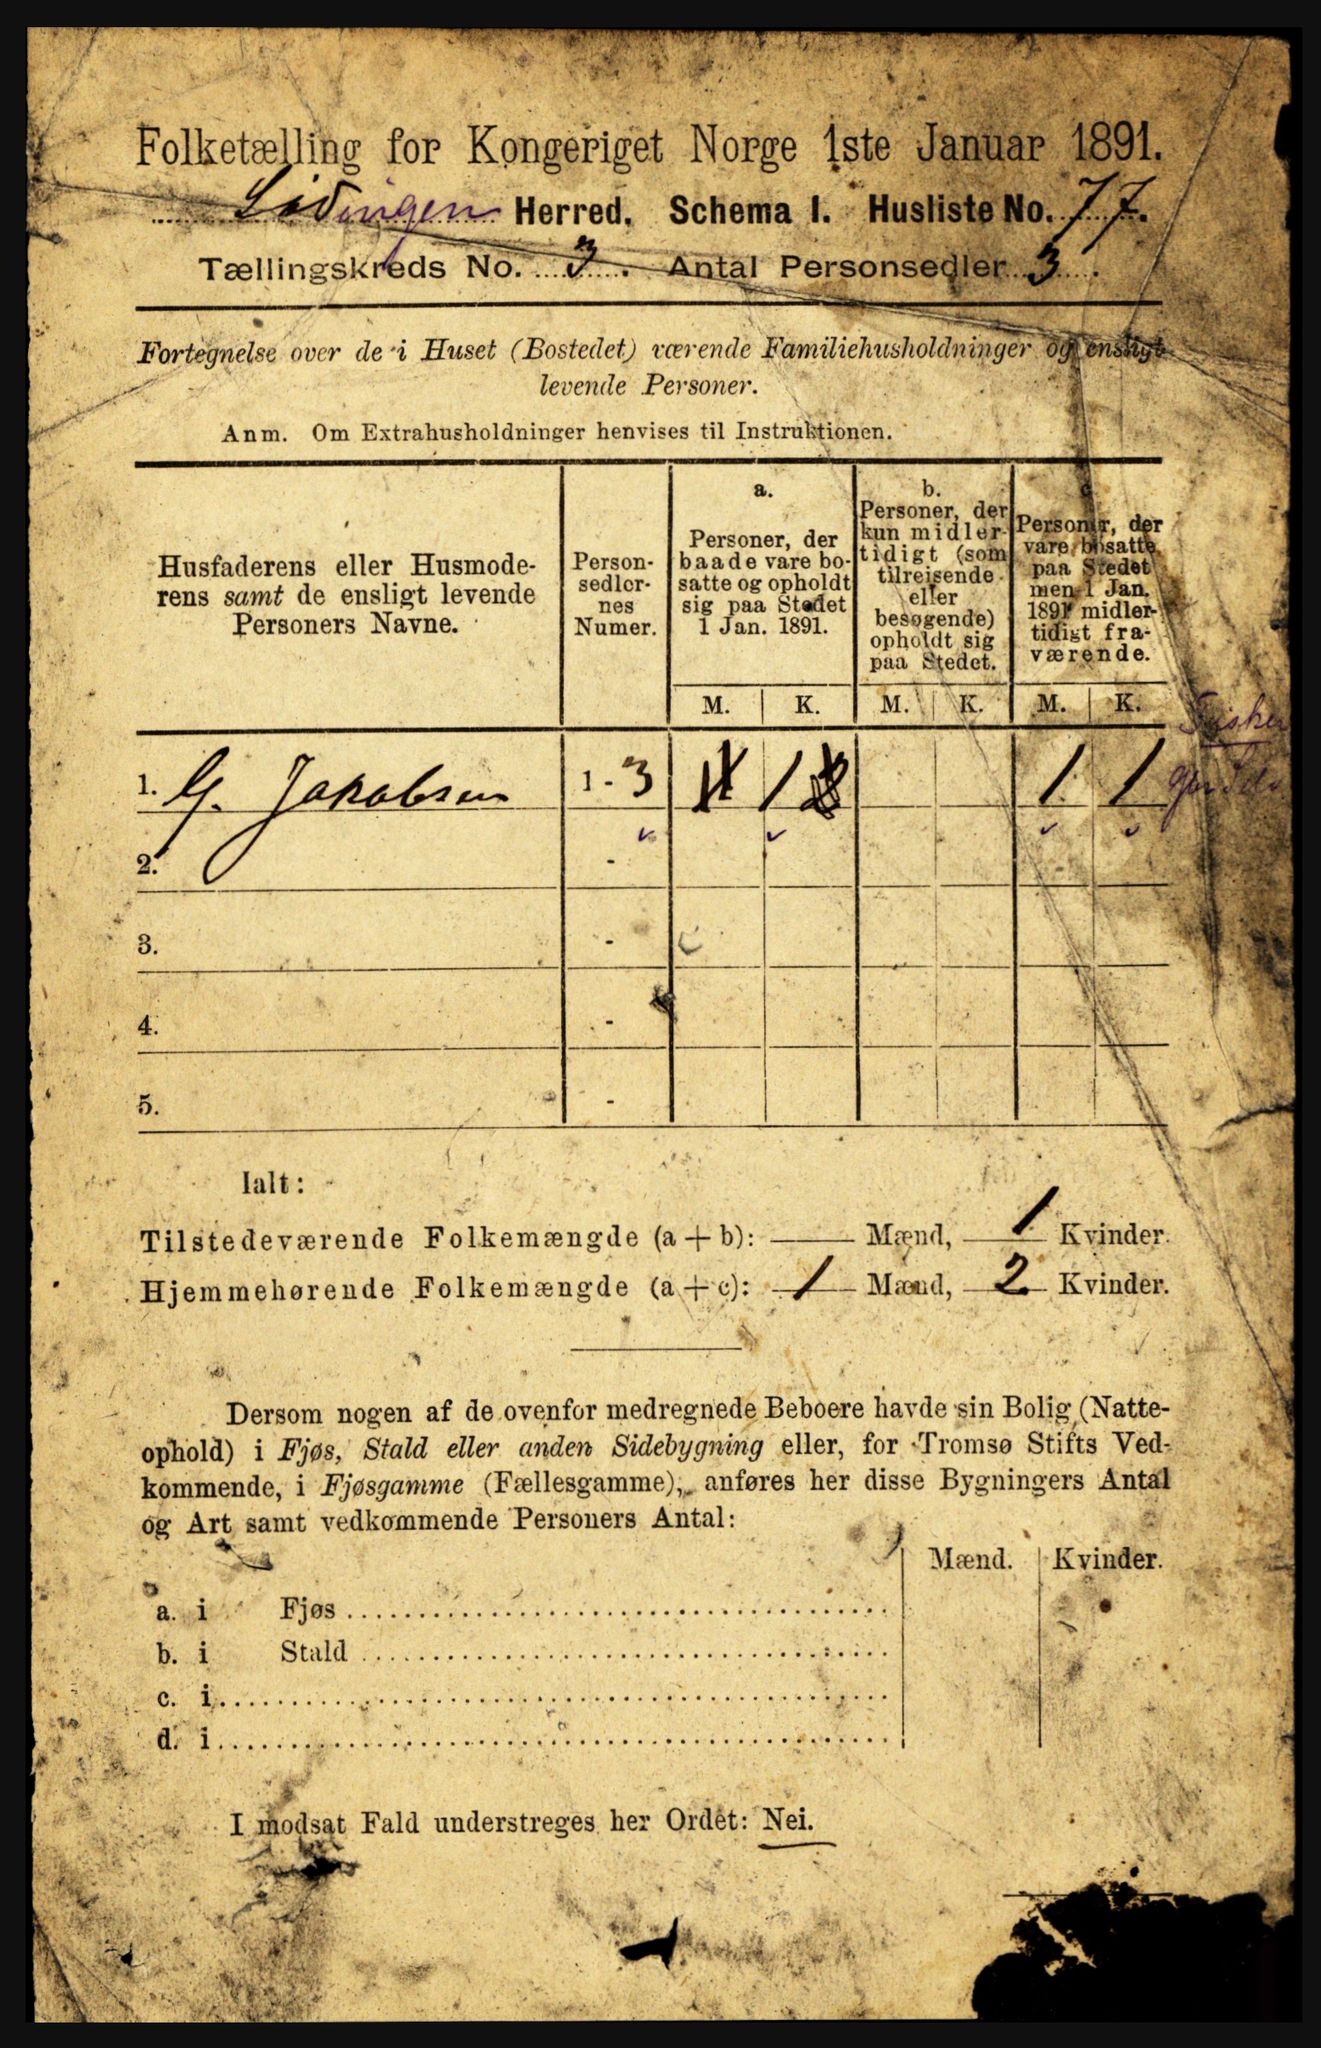 Folketælling for Kongeriget Norge 1ste Januar 1891.
Lødingen Herred. Schema I. Husliste No. 77.
Tællingskreds No. 3. Antal Personsedler 3.
Fortegnelse over de i Huset (Bostedet) værende Familiehusholdninger og ensligt
levende Personer.
Anm. Om Extrahusholdninger henvises til Instruktionen.
Husfaderens eller Husmode-
rens samt de ensligt levende
Personers Navne.
Person-
sedler-
nes
Numer.
a.
Personer, der
baade vare bo-
satte og opholdt
sig paa Stedet
1 Jan. 1891.
b.
Personer, der
kun midler-
tidigt (som
tilreisende
eller
besøgende)
opholdt sig
paa Stedet.
c.
Personer, der
vare bosatte
paa Stedet
men 1 Jan.
1891 midler-
tidigt fra-
værende.
M. K. M. K. M. K.
1. G. Jakobsen 1 - 3 1 1 1
2. -
3. -
4. -
5. -
Ialt:
Tilstedeværende Folkemængde (a + b): — Mænd, 1 Kvinder.
Hjemmehørende Folkemængde (a + c): 1 Mænd, 2 Kvinder.
Dersom nogen af de ovenfor medregnede Beboere havde sin Bolig (Natte-
ophold) i Fjøs, Stald eller anden Sidebygning eller, for Tromsø Stifts Ved-
kommende, i Fjøsgamme (Fællesgamme), anføres her disse Bygningers Antal
og Art samt vedkommende Personers Antal:
Mænd. Kvinder.
a. i Fjøs
b. i Stald
c. i
d. i
I modsat Fald understreges her Ordet: Nei.